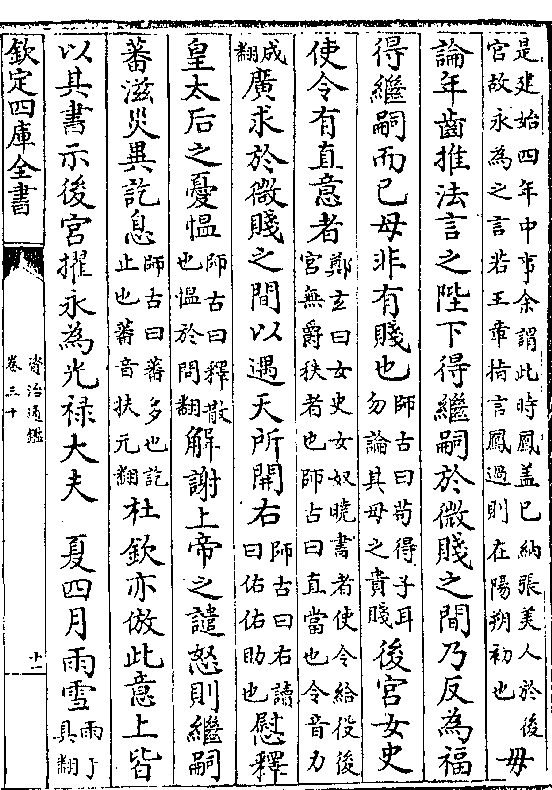 是建始四年中事余謂此時鳳盖已納張美人於後
宮故永為之言若王章指言鳳過則在陽朔初也毋
論年齒推法言之陛下得繼嗣於微賤之間乃反為福
得繼嗣而已母非有賤也師古曰苟得子耳勿論其母之貴賤後宮女史
使令有直意者鄭玄曰女史女奴曉書者使令給役後宮無爵秩者也師古曰直當也令音力
成翻廣求於微賤之間以遇天所開右師古曰右讀曰佑佑助也慰釋
皇太后之憂愠師古曰釋散也愠於問翻解謝上帝之譴怒則繼嗣
蕃滋災異訖息師古曰蕃多也訖止也蕃音扶元翻杜欽亦倣此意上皆
以其書示後宮擢永為光禄大夫 夏四月雨雪雨于具翻
欽定四庫全書
資治通鑑
卷三十
十一